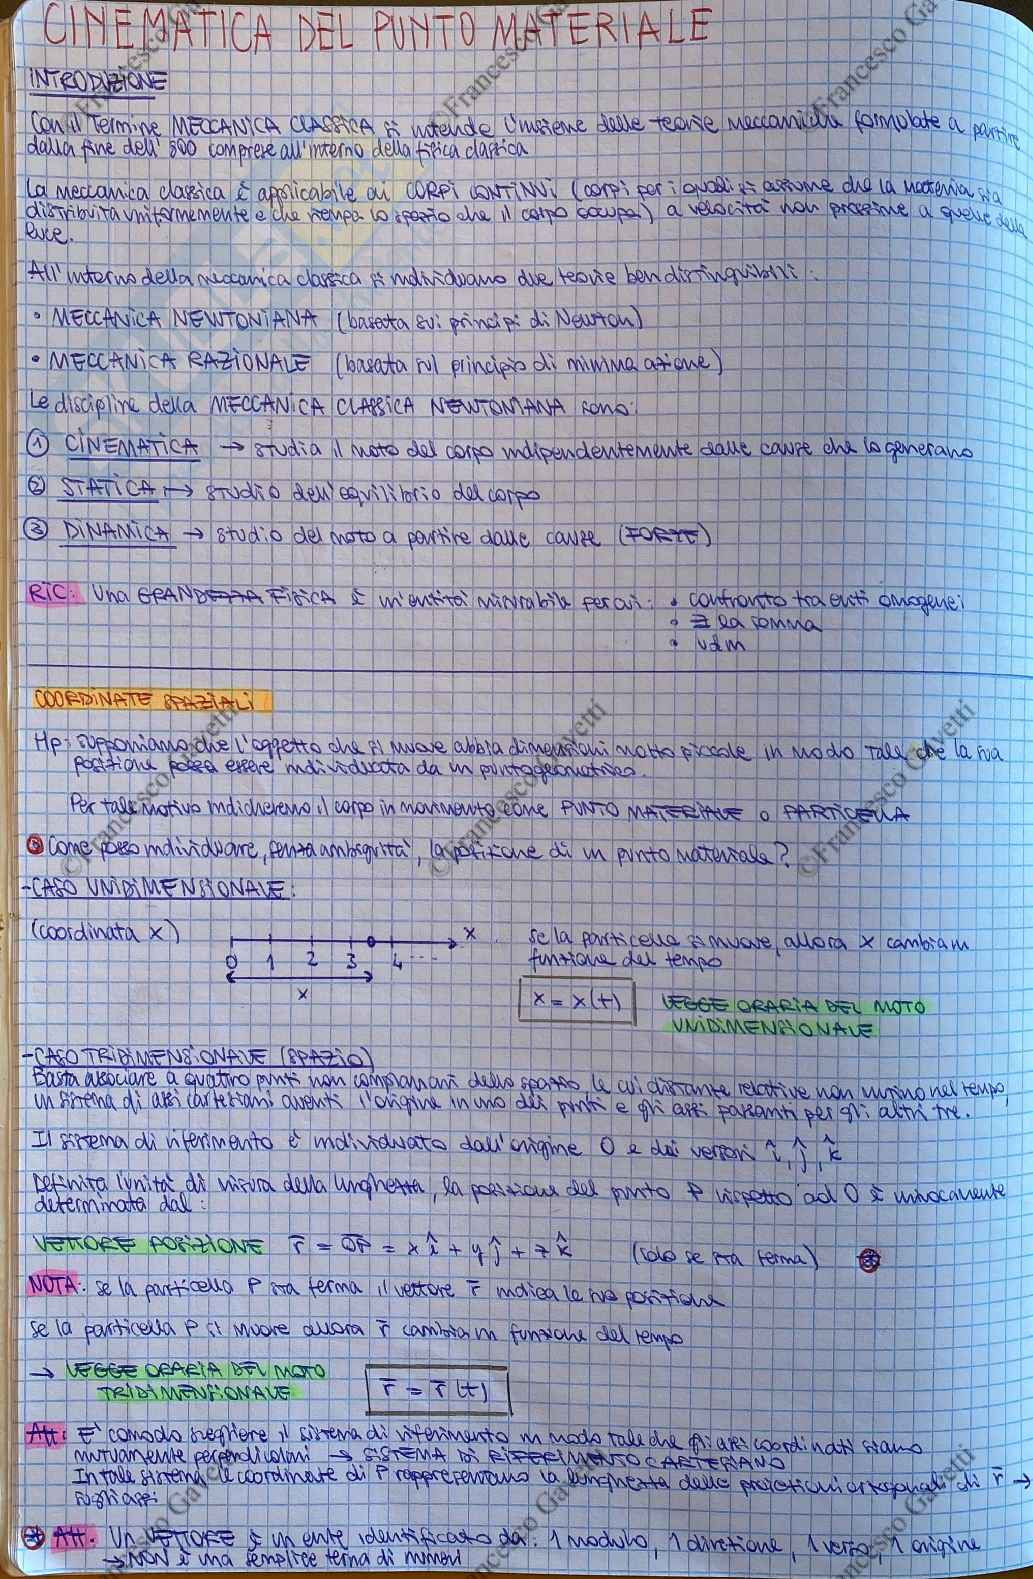 CINEMATICA DEL PUNTO MATERIALE
INTRODUZIONE
Con il termine MECCANICA CLASSICA si intende l'insieme delle teorie meccaniche formulate a partire
dalla fine dell' 500 comprese all'interno della fisica classica
La meccanica classica è applicabile ai CORPI CONTINUI (corpi per i quali si assume che la materia sia
distribuita uniformemente e che riempa lo spazio che il corpo occupa) a velocità non prossime a quelle della
luce.
All'interno della meccanica classica si individuano due teorie ben distinguibili:
• MECCANICA NEWTONIANA (basata sui principi di Newton)
• MECCANICA RAZIONALE (basata sul principio di minima azione)
Le discipline della MECCANICA CLASSICA NEWTONIANA sono:
① CINEMATICA → studia il moto del corpo indipendentemente dalle cause che lo generano
② STATICA → studio dell'equilibrio del corpo
③ DINAMICA → studio del moto a partire dalle cause (FORZE)
RIC: Una GRANDEZZA FISICA è un'entità misurabile per cui: • confronto tra enti omogenei
• ∃ la somma
• udm
COORDINATE SPAZIALI
Hp: supponiamo che l'oggetto che si muove abbia dimensioni molto piccole in modo tale che la sua
posizione possa essere individuata da un punto geometrico.
Per tale motivo indicheremo il corpo in movimento come PUNTO MATERIALE o PARTICELLA
Come posso individuare, senza ambiguità, la posizione di un punto materiale?
-CASO UNIDIMENSIONALE:
(coordinata x)
x
0 1 2 3 4 ....
x
se la particella si muove, allora x cambia in
funzione del tempo
x = x(t) LEGGE ORARIA DEL MOTO
UNIDIMENSIONALE
-CASO TRIDIMENSIONALE (SPAZIO)
Basta associare a quattro punti non complanari dello spazio le cui distanze relative non mutino nel tempo,
un sistema di assi cartesiani aventi l'origine in uno dei punti e gli assi passanti per gli altri tre.
Il sistema di riferimento è individuato dall'origine O e dei versori î, ĵ, k̂
Definita l'unità di misura della lunghezza, la posizione del punto P rispetto ad O è univocamente
determinata dal:
VETTORE POSIZIONE r̄ = OP = xî + yĵ + zk̂ (solo se sta ferma) ⊛
NOTA: se la particella P sta ferma il vettore r̄ indica la sua posizione
se la particella P si muove allora r̄ cambia in funzione del tempo
→ LEGGE ORARIA DEL MOTO
TRIDIMENSIONALE
r̄ = r̄(t)
Att: E' comodo scegliere il sistema di riferimento in modo tale che gli assi coordinati siano
mutuamente perpendicolari → SISTEMA DI RIFERIMENTO CARTESIANO
In tale sistema le coordinate di P rappresentano la lunghezza delle proiezioni ortogonali di r̄ →
sugli assi
⊛ Att. Un VETTORE è un ente identificato da: 1 modulo, 1 direzione, 1 verso, 1 origine
→ NON è una semplice terna di numeri
© Francesco Gavetti